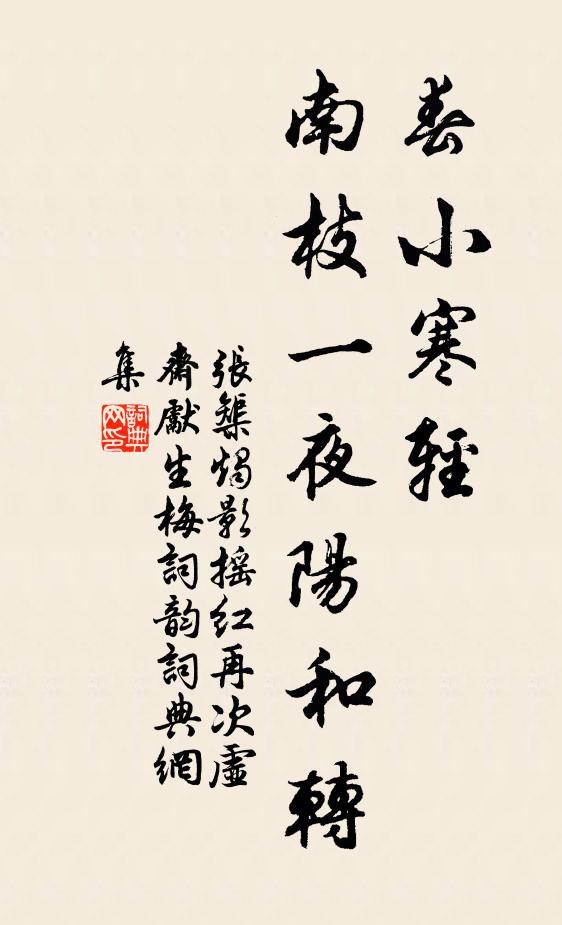 春小寒輕
南枝一夜陽和轉
張榘燭影搖紅再次虛
齋獻生梅詞韵詞典網
集
詞典
网印